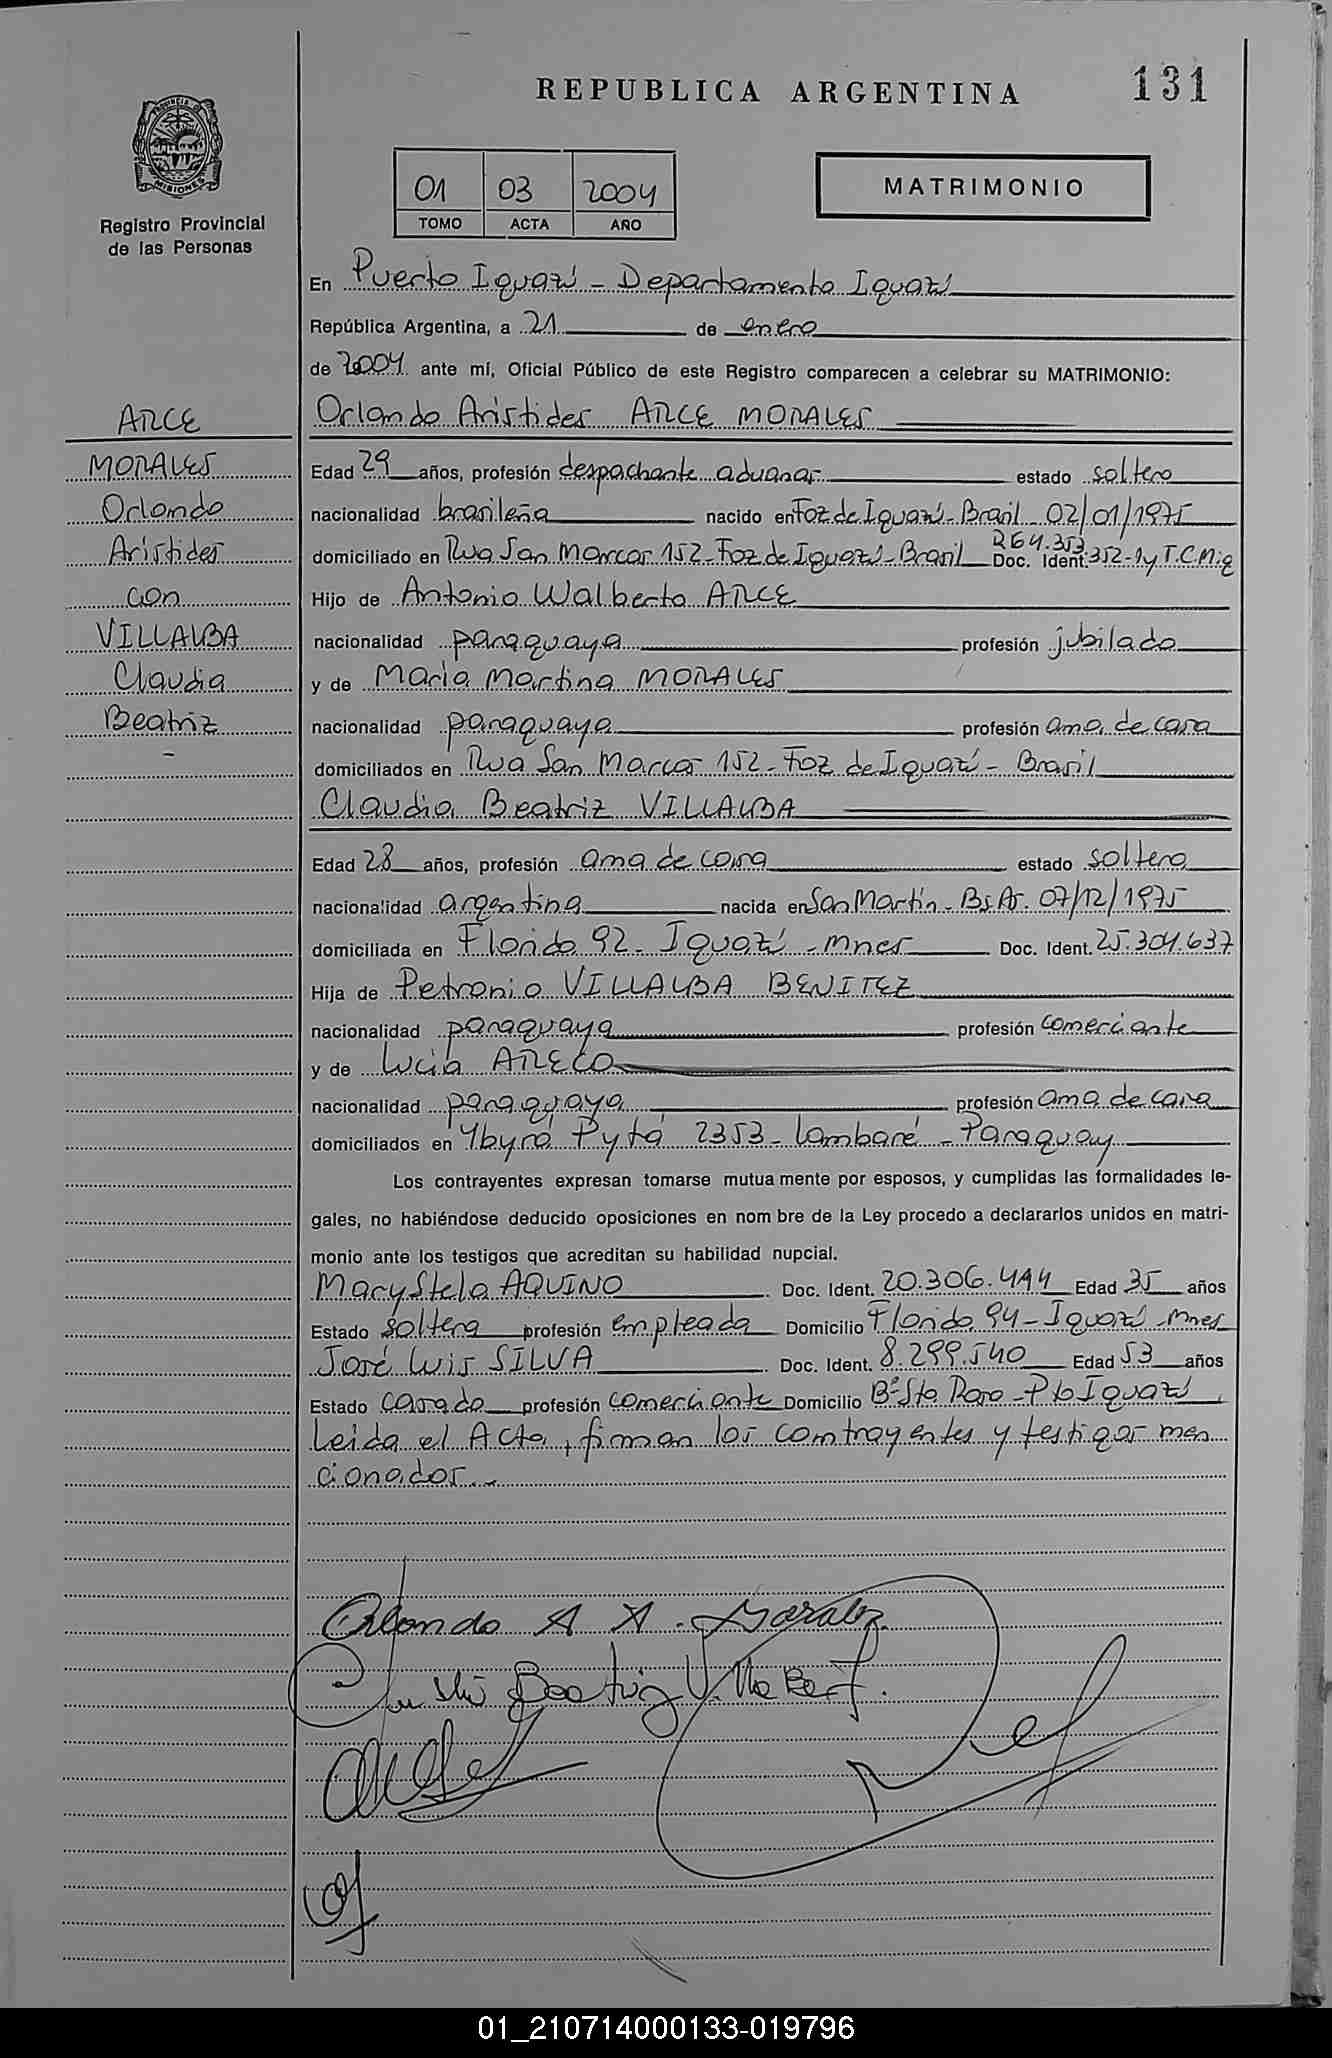 REPUBLICA ARGENTINA
131
PROVINCIA DE MISIONES
Registro Provincial
de las Personas
01 03 2004
TOMO ACTA AÑO
MATRIMONIO
ARCE
MORALES
Orlando
Arístides
con
VILLALBA
Claudia
Beatriz
En Puerto Iguazú - Departamento Iguazú
República Argentina, a 21 de enero
de 2004 ante mí, Oficial Público de este Registro comparecen a celebrar su MATRIMONIO:
Orlando Arístides ARCE MORALES
Edad 29 años, profesión despachante aduanar estado soltero
nacionalidad brasileña nacido en Foz de Iguazú - Brasil 02/01/1975
domiciliado en Rua San Marcos 152 - Foz de Iguazú - Brasil Doc. Ident. 264.353 352-1y T.C.Mig
Hijo de Antonio Walberto ARCE
nacionalidad paraguaya profesión jubilado
y de María Martina MORALES
nacionalidad paraguaya profesión ama de casa
domiciliados en Rua San Marcos 152 - Foz de Iguazú - Brasil
Claudia Beatriz VILLALBA
Edad 28 años, profesión ama de casa estado soltera
nacionalidad argentina nacida en San Martín - Bs.As. 07/12/1975
domiciliada en Florida 92 - Iguazú - Mnes Doc. Ident. 25.304.637
Hija de Petronio VILLALBA BENITEZ
nacionalidad paraguaya profesión comerciante
y de Lucía ARECO
nacionalidad paraguaya profesión ama de casa
domiciliados en Ybyrá Pytá 2353 - Lambaré - Paraguay
Los contrayentes expresan tomarse mutuamente por esposos, y cumplidas las formalidades le-
gales, no habiéndose deducido oposiciones en nom bre de la Ley procedo a declararlos unidos en matri-
monio ante los testigos que acreditan su habilidad nupcial.
Mary Stela AQUINO Doc. Ident. 20.306.494 Edad 35 años
Estado soltera profesión empleada Domicilio Florida 94 - Iguazú - Mnes
José Luis SILVA Doc. Ident. 8.299.540 Edad 53 años
Estado casado profesión comerciante Domicilio Bº Sta Rosa - Pto Iguazú
Leída el Acta, firman los contrayentes y testigos men
cionados.-
Orlando A A. Morales